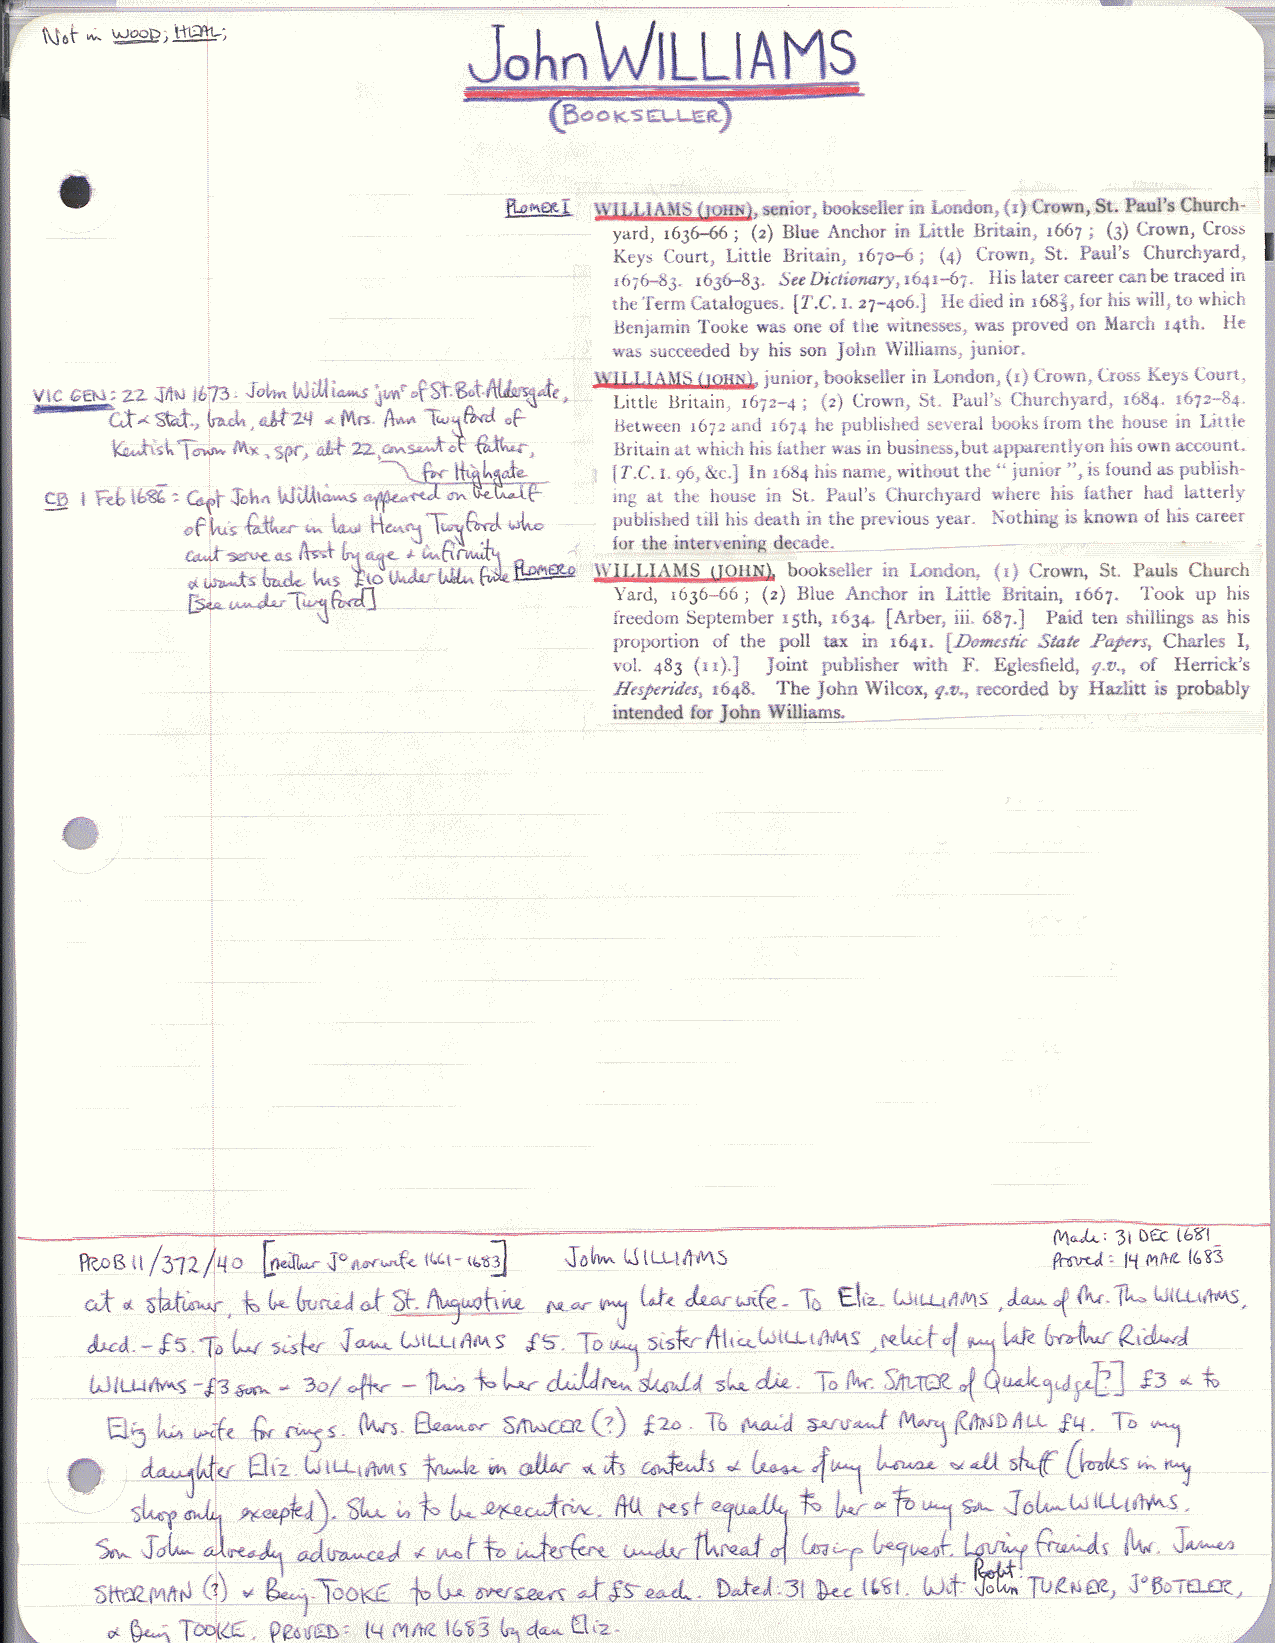 Not in WOOD; HEAL;
John WILLIAMS
(BOOKSELLER)
PLOMER I
WILLIAMS (JOHN), senior, bookseller in London, (1) Crown, St. Paul's Church-
yard, 1636–66 ; (2) Blue Anchor in Little Britain, 1667 ; (3) Crown, Cross
Keys Court, Little Britain, 1670–6 ; (4) Crown, St. Paul's Churchyard,
1676–83. 1636–83. See Dictionary, 1641–67. His later career can be traced in
the Term Catalogues. [T.C. I. 27–406.] He died in 168⅔, for his will, to which
Benjamin Tooke was one of the witnesses, was proved on March 14th. He
was succeeded by his son John Williams, junior.
WILLIAMS (JOHN), junior, bookseller in London, (1) Crown, Cross Keys Court,
Little Britain, 1672–4 ; (2) Crown, St. Paul's Churchyard, 1684. 1672–84.
Between 1672 and 1674 he published several books from the house in Little
Britain at which his father was in business, but apparently on his own account.
[T.C. I. 96, &c.] In 1684 his name, without the " junior ", is found as publish-
ing at the house in St. Paul's Churchyard where his father had latterly
published till his death in the previous year. Nothing is known of his career
for the intervening decade.
VIC GEN: 22 JAN 1673: John Williams junr of St. Bot. Aldersgate,
Cit & Stat., bach, abt 24 & Mrs. Ann Twyford of
Kentish Town Mx, spr, abt 22, consent of father,
for Highgate
CB 1 Feb 1686: Capt John Williams appeared on behalf
of his father in law Henry Twyford who
cant serve as Asst by age & infirmity
& wants back his £10 Under Wdn fine
[see under Twyford]
PLOMER O
WILLIAMS (JOHN), bookseller in London, (1) Crown, St. Pauls Church
Yard, 1636–66 ; (2) Blue Anchor in Little Britain, 1667. Took up his
freedom September 15th, 1634. [Arber, iii. 687.] Paid ten shillings as his
proportion of the poll tax in 1641. [Domestic State Papers, Charles I,
vol. 483 (11).] Joint publisher with F. Eglesfield, q.v., of Herrick's
Hesperides, 1648. The John Wilcox, q.v., recorded by Hazlitt is probably
intended for John Williams.
PROB 11/372/40 [neither Jo nor wife 1661–1683] John WILLIAMS
Made: 31 DEC 1681
Proved: 14 MAR 1683
cit & stationer, to be buried at St. Augustine near my late dear wife. To Eliz. WILLIAMS, dau of Mr. Tho WILLIAMS,
decd. – £5. To her sister Jane WILLIAMS £5. To my sister Alice WILLIAMS, relict of my late brother Richard
WILLIAMS – £3 soon & 30/ after – this to her children should she die. To Mr. SALTER of Quakgidge [?] £3 & to
Eliz his wife for rings. Mrs. Eleanor SAWCER (?) £20. To maid servant Mary RANDALL £4. To my
daughter Eliz. WILLIAMS trunk in cellar & its contents & lease of my house & all stuff (books in my
shop only excepted). She is to be executrix. All rest equally to her & to my son John WILLIAMS.
Son John already advanced & not to interfere under threat of losing bequest. Loving friends Mr. James
SHERMAN (?) & Benj. TOOKE to be overseers at £5 each. Dated: 31 Dec 1681. Wit: Robt: John TURNER, Jo BOTELER,
& Benj TOOKE. PROVED: 14 MAR 1683 by dau Eliz.